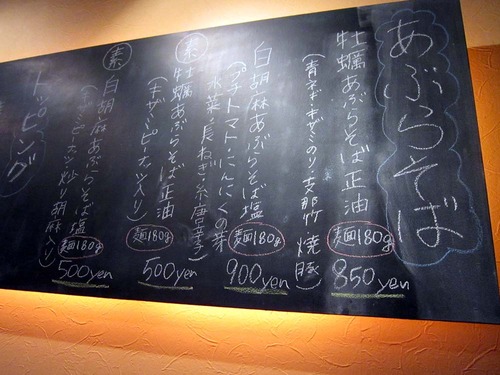 あぶらそば
牡蠣あぶらそば正油
(青ネギ・キザミのり・支那竹 焼豚)
麺180g
850yen
白胡麻あぶらそば塩
(プチトマト・にんにくの芽
水菜・長ねぎ・糸唐辛子)
麺180g
900yen
素
牡蠣あぶらそば正油
(キザミピーナッツ入り)
麺180g
500yen
素
白胡麻あぶらそば塩
(キザミピーナッツ炒り胡麻入り)
麺180g
500yen
トッピング